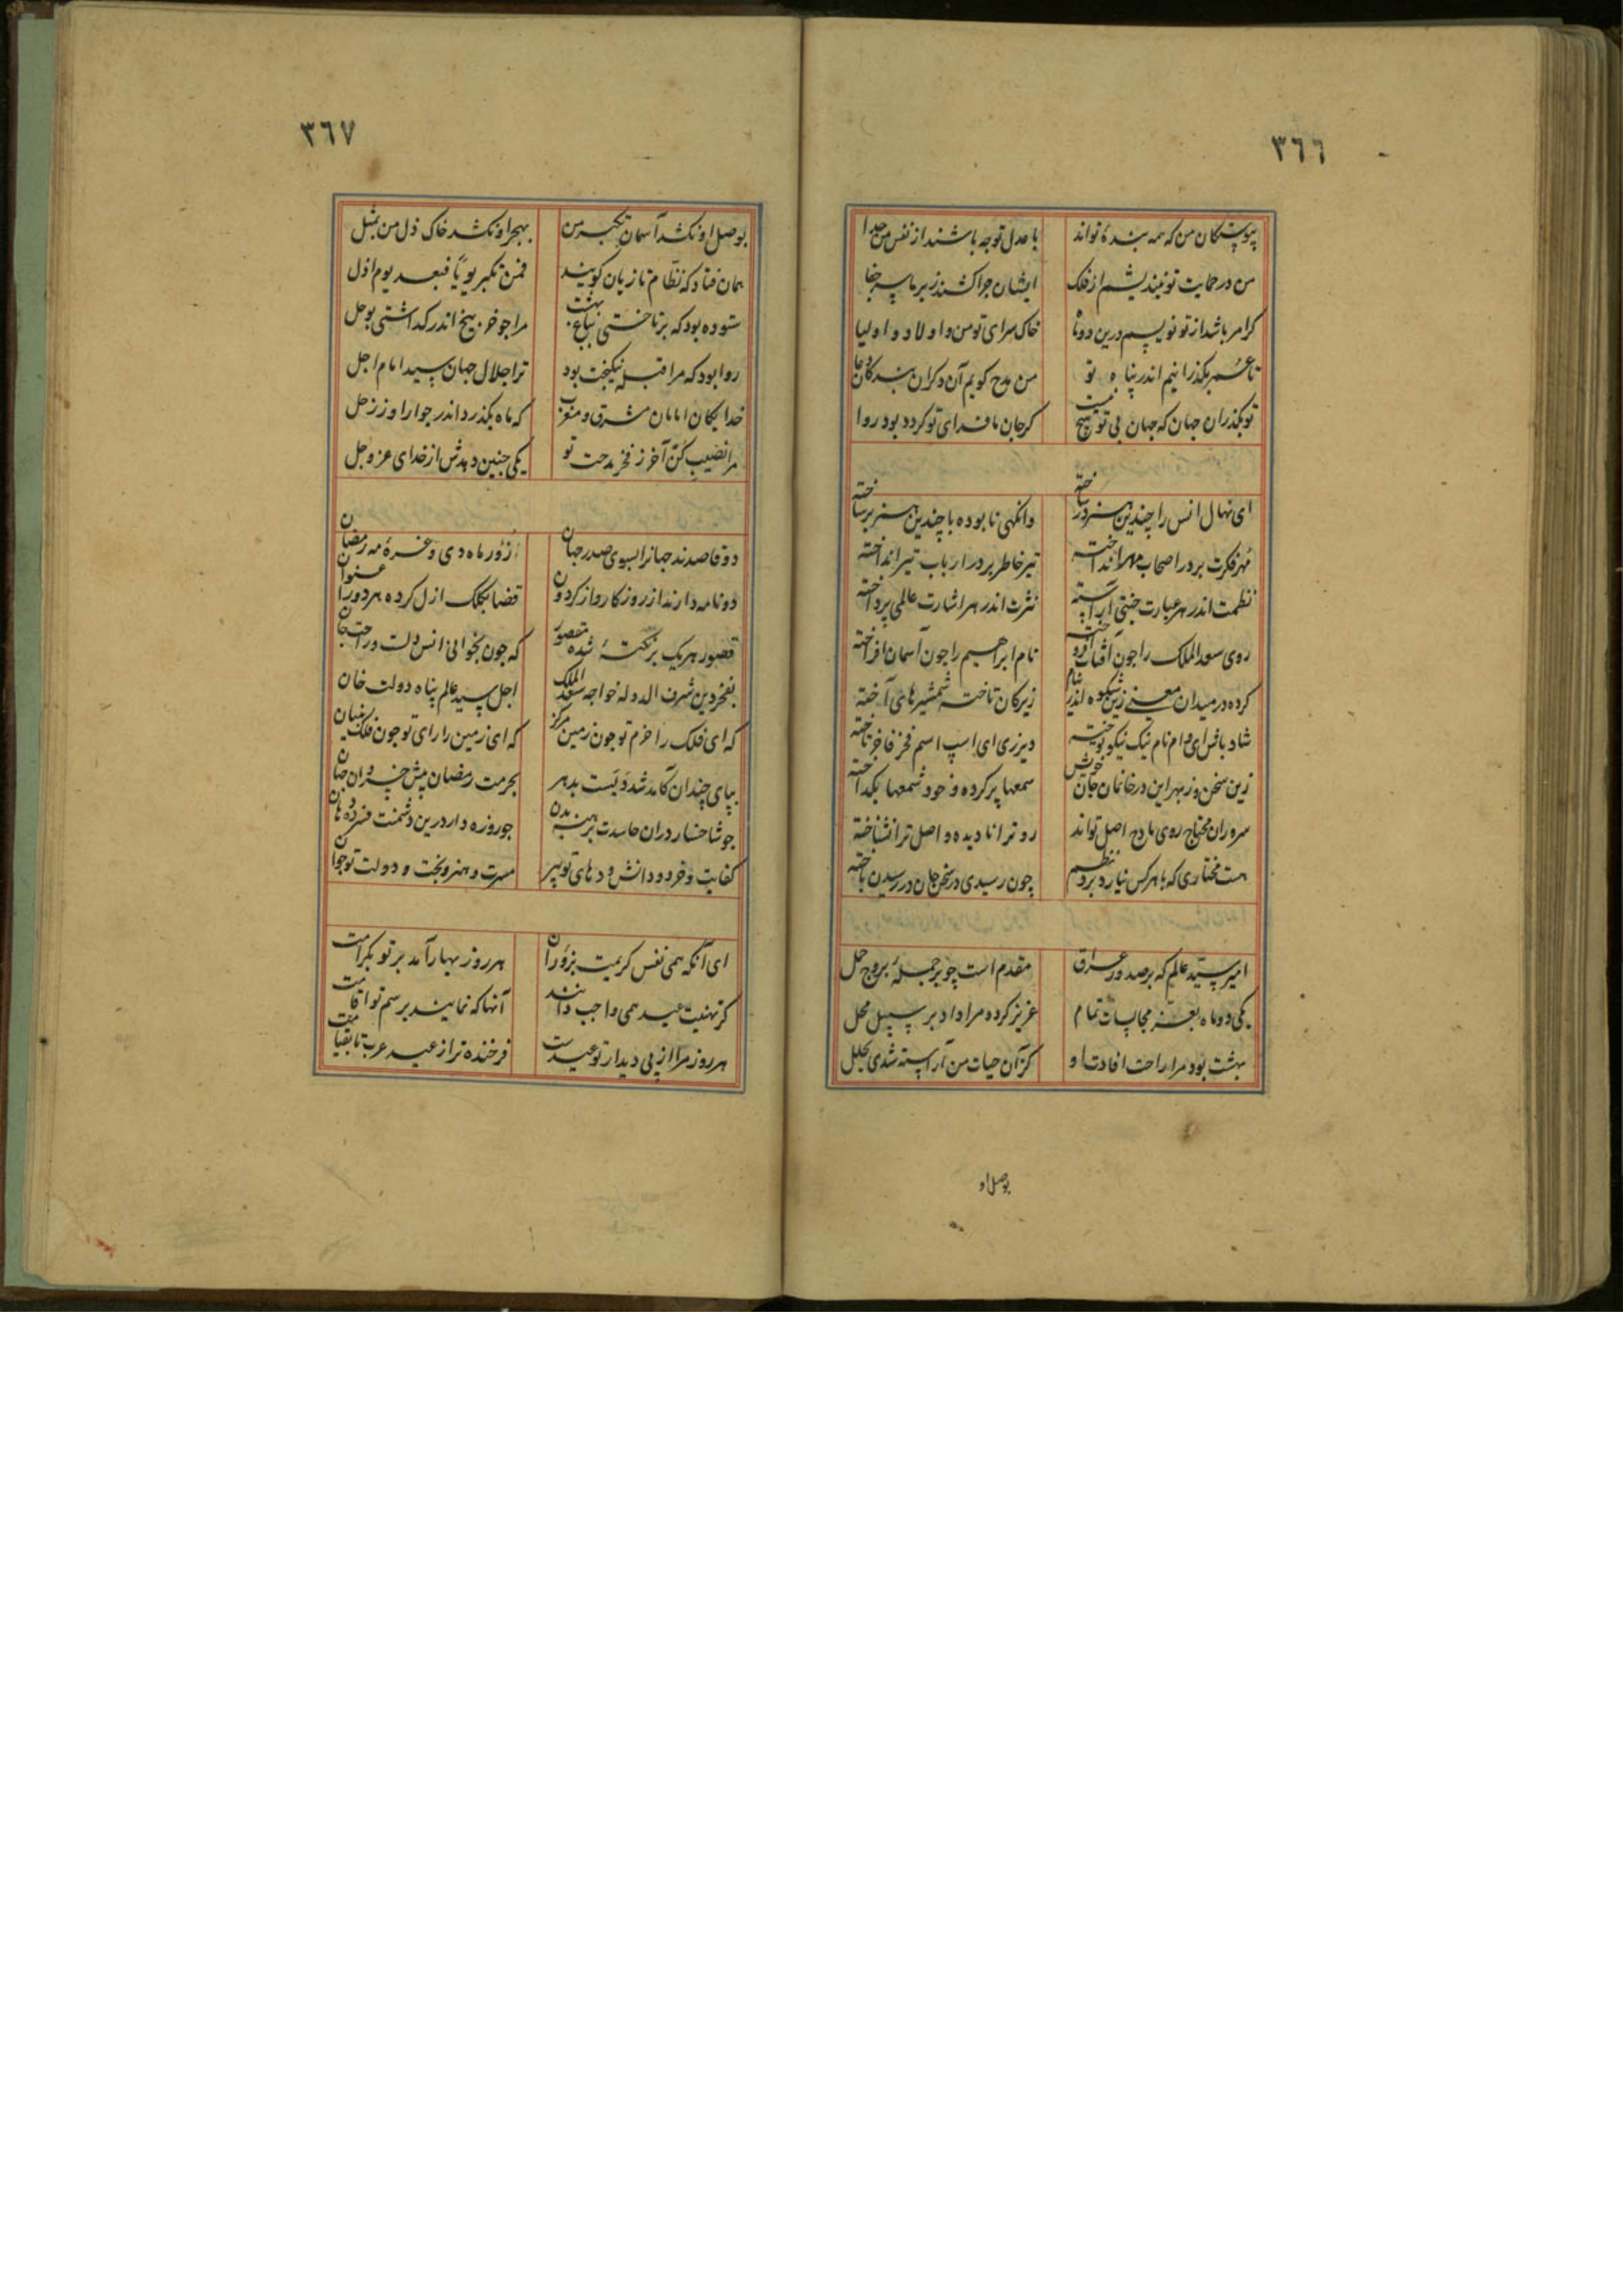 ٣٦٦
پیوستگان من که همه بنده تواند با عدل تو چه باشند از نفس من جدا
من در حمایت تو نیندیشم از فلک ایشان چرا کشند زبر ما سر جفا
کر امر باشد از تو نویسم درین دوتا خاک سرای تو من و اولاد و اولیا
تا عمر بگذرانیم اندر پناه تو من مدح کویم آن دکران بندکان دعا
تو بگذران جهان که جهان بی تو هیچ نیست کر جان ما فدای تو کردد بود روا
ای نهال انس را چندین هنر در ساخته وانگهی نابوده با چندین هنر بر ساخته
مهر فکرت بر در اصحاب مهر انداخته تیر خاطر بر در ارباب تیر انداخته
نظمت اندر هر عبارت جنتی آراسته نثرت اندر هر اشارت عالمی پرداخته
روی سعد الملک را چون آفتاب افروخته نام ابراهیم را چون آسمان افراخته
کرده در میدان معنی زین شکوه اندر تمام زیرکان تاخته شمشیرهای آخته
شاد باش ای وام نام نیک نیکو توخته دیر زی ای اسپ اسم فخر فاخر تاخته
زین سخن وز بهر این در خانمان جان خویش سمعها پر کرده و خود شمعها بگداخته
سروران محتاج روی مادح اصل تواند رو ترا نادیده و اصل ترا نشناخته
هست مختاری که با هر کس نیارد برد نظم چون رسیدی در سخن جان در رسیدن باخته
امیر سید عالم که بر صدور عراق مقدم است چو بر جمله بروج حمل
یکی دو ماه بعز مجالسات تمام عزیز کرد و مرا داد بر سپیل محل
بهشت بود مرا راحت افادت او کز آن حیات من آراسته شدی بحلل
بوصل او
٣٦٧
بوصل او نکشد آسمان تکبر من بهجر او نکشد خاک ذل من بمثل
همان فتاد که نظام تازیان کویند فمن تکبر یوما فبعد یوم اذل
ستوده بود که بر تاختی بباغ بهشت مرا چو خر بیخ اندر کداشتی بوحل
روا بود که مرا قبله نیکبخت بود ترا جلال جهان سید امام اجل
خدایکان امامان مشرق و مغرب که ماه بگذرد اندر جوار او ز زحل
مرا نصیب کن آخر ز فخر مدحت تو یکی چنین دهدش از خدای عز و جل
دو قاصدند جهانرا بسوی صدر جهان ز دور ماه دی و غره مه رمضان
دو نامه دارند از روزکار و از کردون قضا بکلک ازل کرده هر دو را عنوان
قصور هریک بر نکته شده مقصور که چون بخوانی انس دلت و راحت جان
بفخر دین شرف الدوله خواجه سعد الملک اجل سید عالم پناه دولت خان
که ای فلک را حزم تو چون زمین مرکز که ای زمین را رای تو چون فلک بنیان
بپای چندان کآمد شدیست بدهر بحرمت رمضان پیش خسروان جهان
چو شاخسار دران حاسدت برهنه بدن چو روزه دار درین دشمنت فسرده دهان
کفایت و خرد و دانش و دهای تو پیر مسرت و هنر و بخت و دولت تو جوان
ای آنکه همی نفس کریمت بزؤران هر روز بهار آمد بر تو بکرامت
کر تهنیت عید همی واجب دانند آنها که نمایند برسم تو اقامت
هر روز مرا از پی دیدار تو عیدست فرخنده تر از عید عرب تا بقیامت